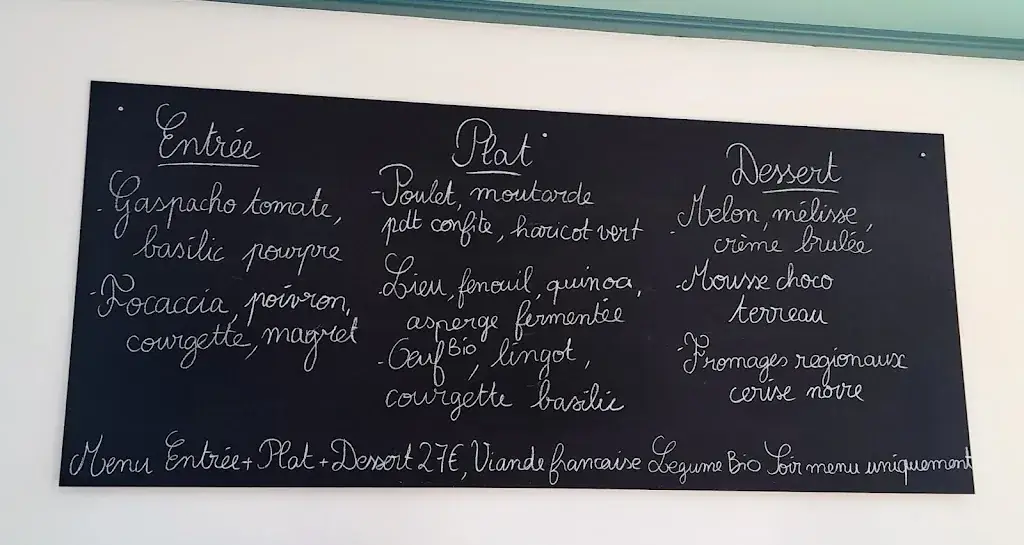 Entrée
- Gaspacho tomate,
basilic pourpre
- Focaccia, poivron,
courgette, magret
Plat
- Poulet, moutarde
pdt confite, haricot vert
- Lieu, fenouil, quinoa,
asperge fermentée
- Oeuf Bio, lingot,
courgette basilic
Dessert
- Melon, mélisse,
crème brulée
- Mousse choco
terreau
- Fromages regionaux
cerise noire
Menu Entrée + Plat + Dessert 27€, Viande francaise Legume Bio Soir menu uniquement